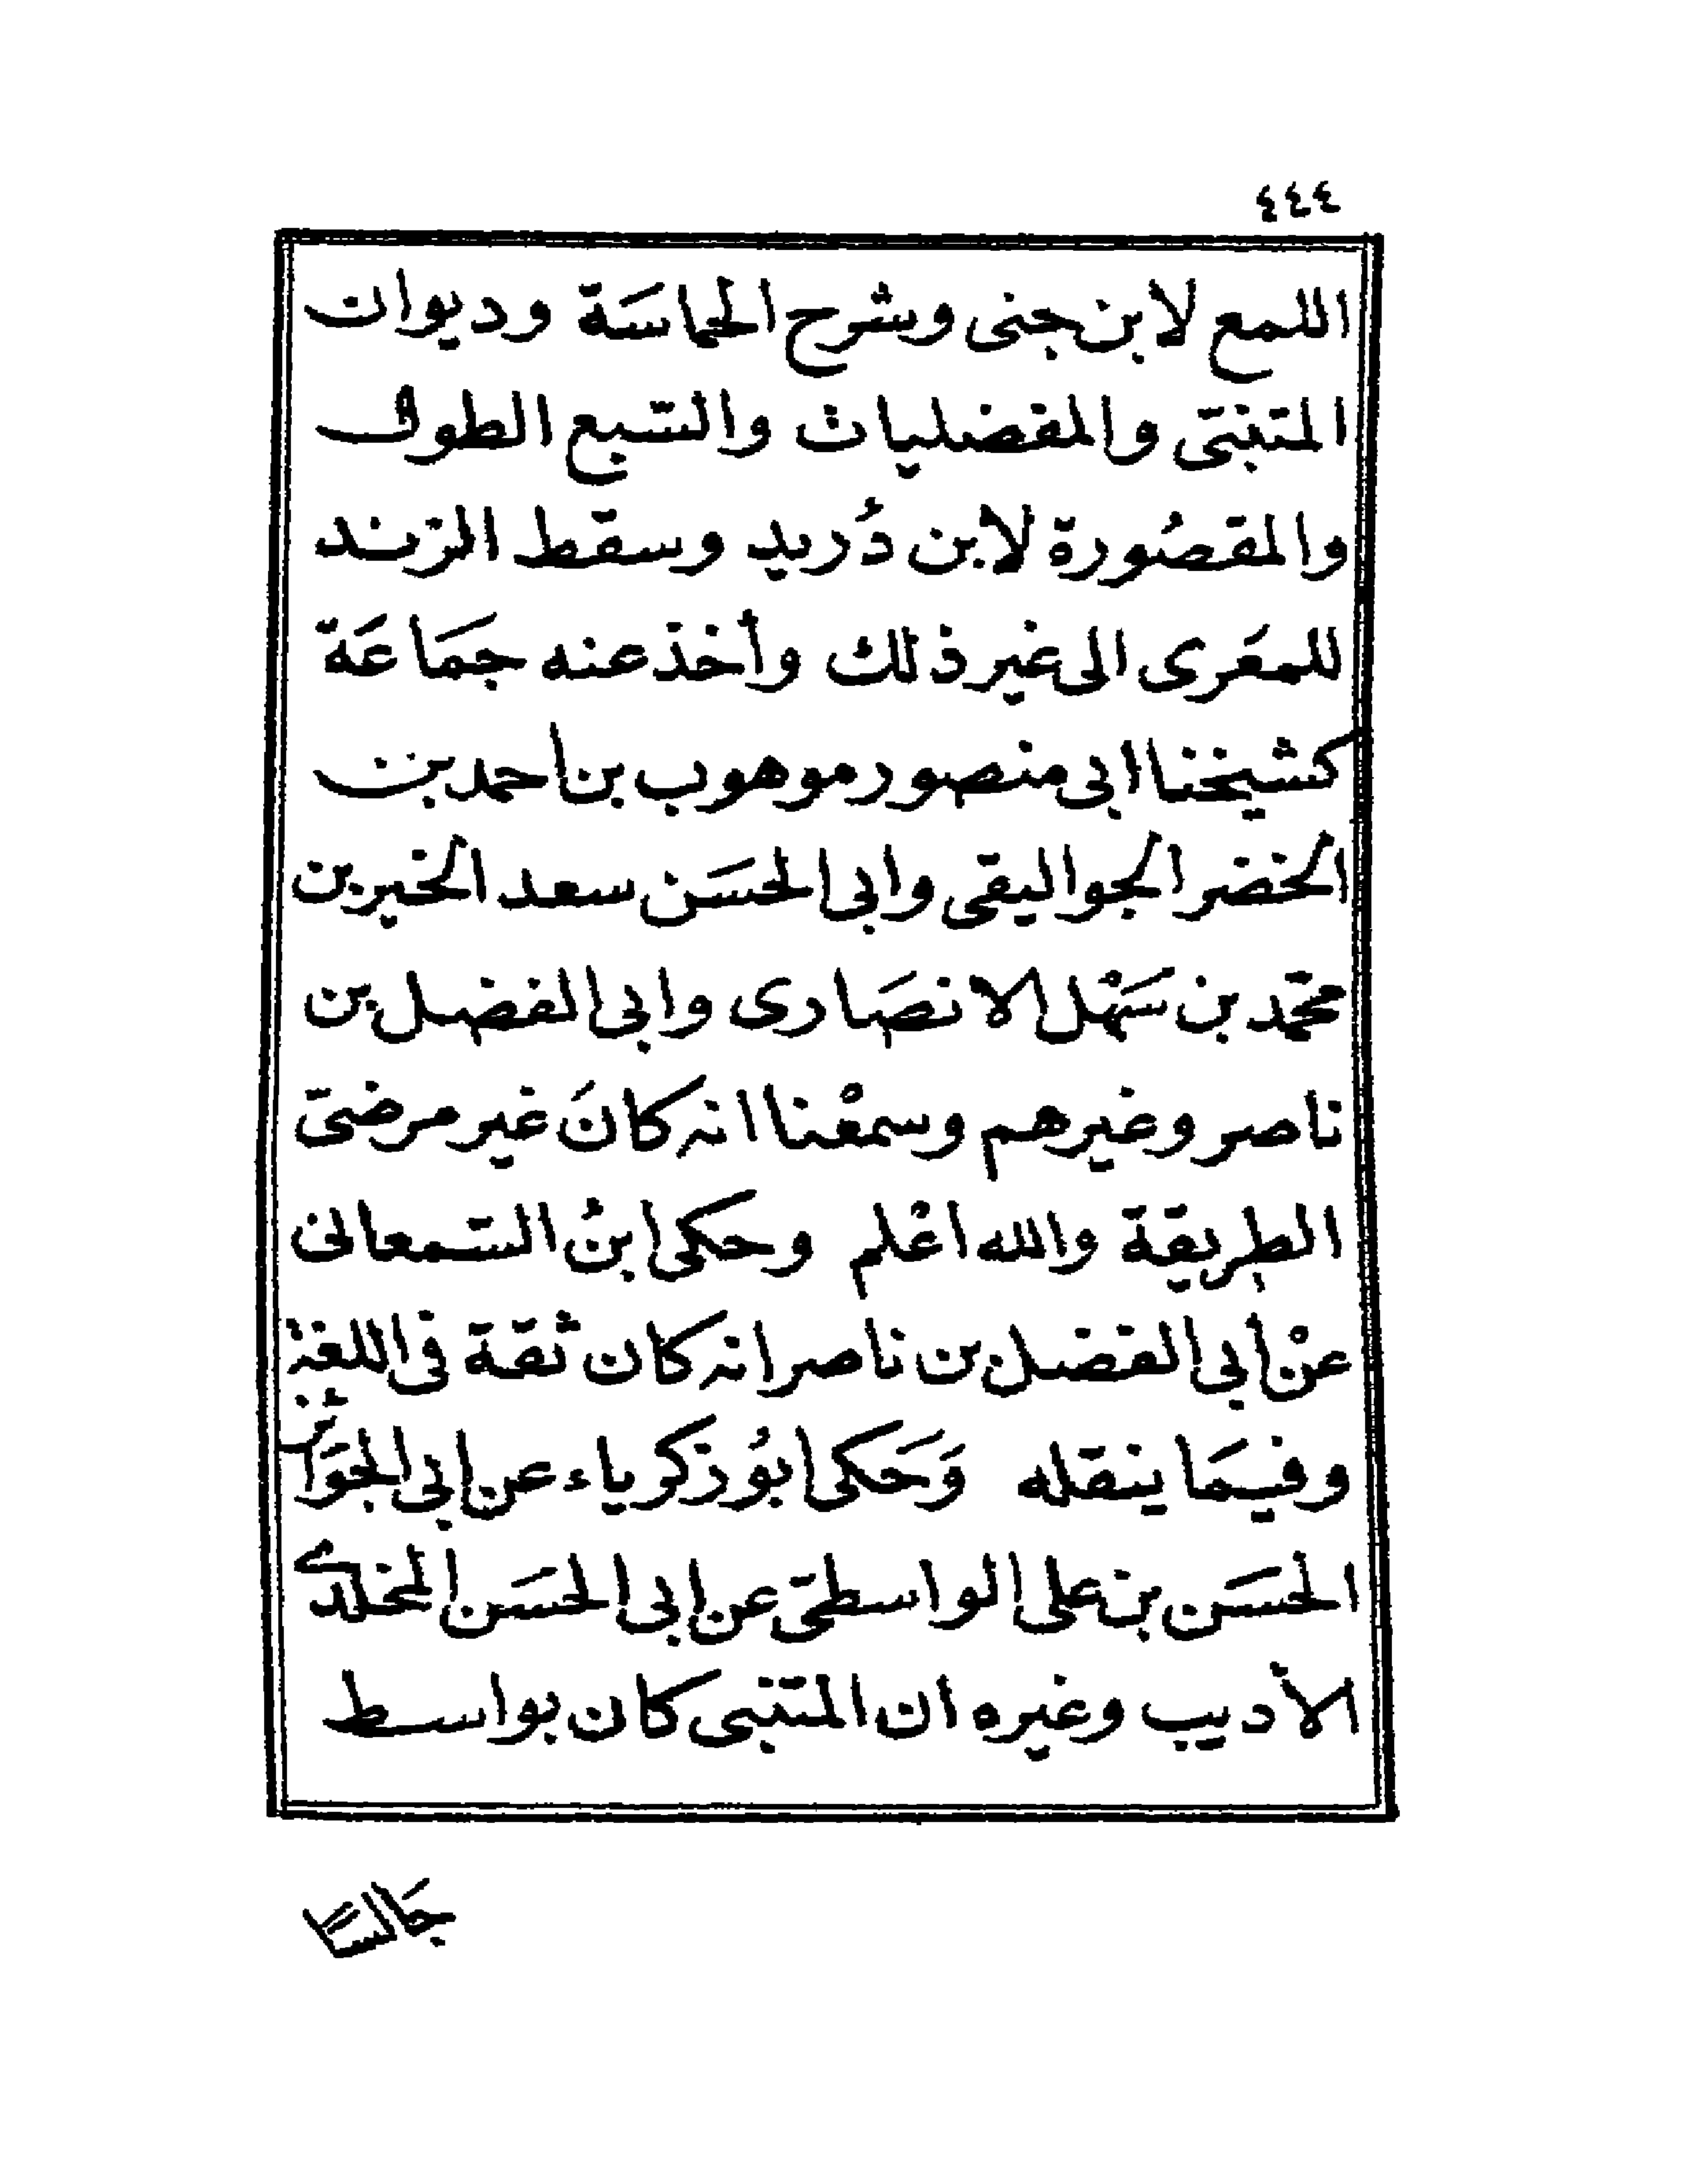 ٤٤٤
اللمع لابن جنى وشرح الحماسَة وديوان
المتنبّى والمفضليات والسّبع الطول
والمقصُورة لابن دُريد وسقط الزند
للمعَرى الى غير ذلك وأخذ عنه جمَاعَة
كشيخنا ابى منصور موهوب بن احمد بن
الخضر الجواليقى وابى الحسَن سعد الخير بن
محمّد بن سَهْل الانصَارى وابى الفضل بن
ناصر وغيرهم وسمعْنا انه كانَ غير مرضىّ
الطريقة والله اعْلم وحكى ابنُ السّمعانى
عنْ أبى الفضل بن ناصر انه كان ثقة فى اللغة
وفيمَا ينقله وَحَكى ابوُ زكرياء عن ابى الجوَائز
الحسَن بن على الواسطىّ عن ابى الحسَن المخلدى
الأديب وغيره ان المتنبى كان بواسط
جَالسًا